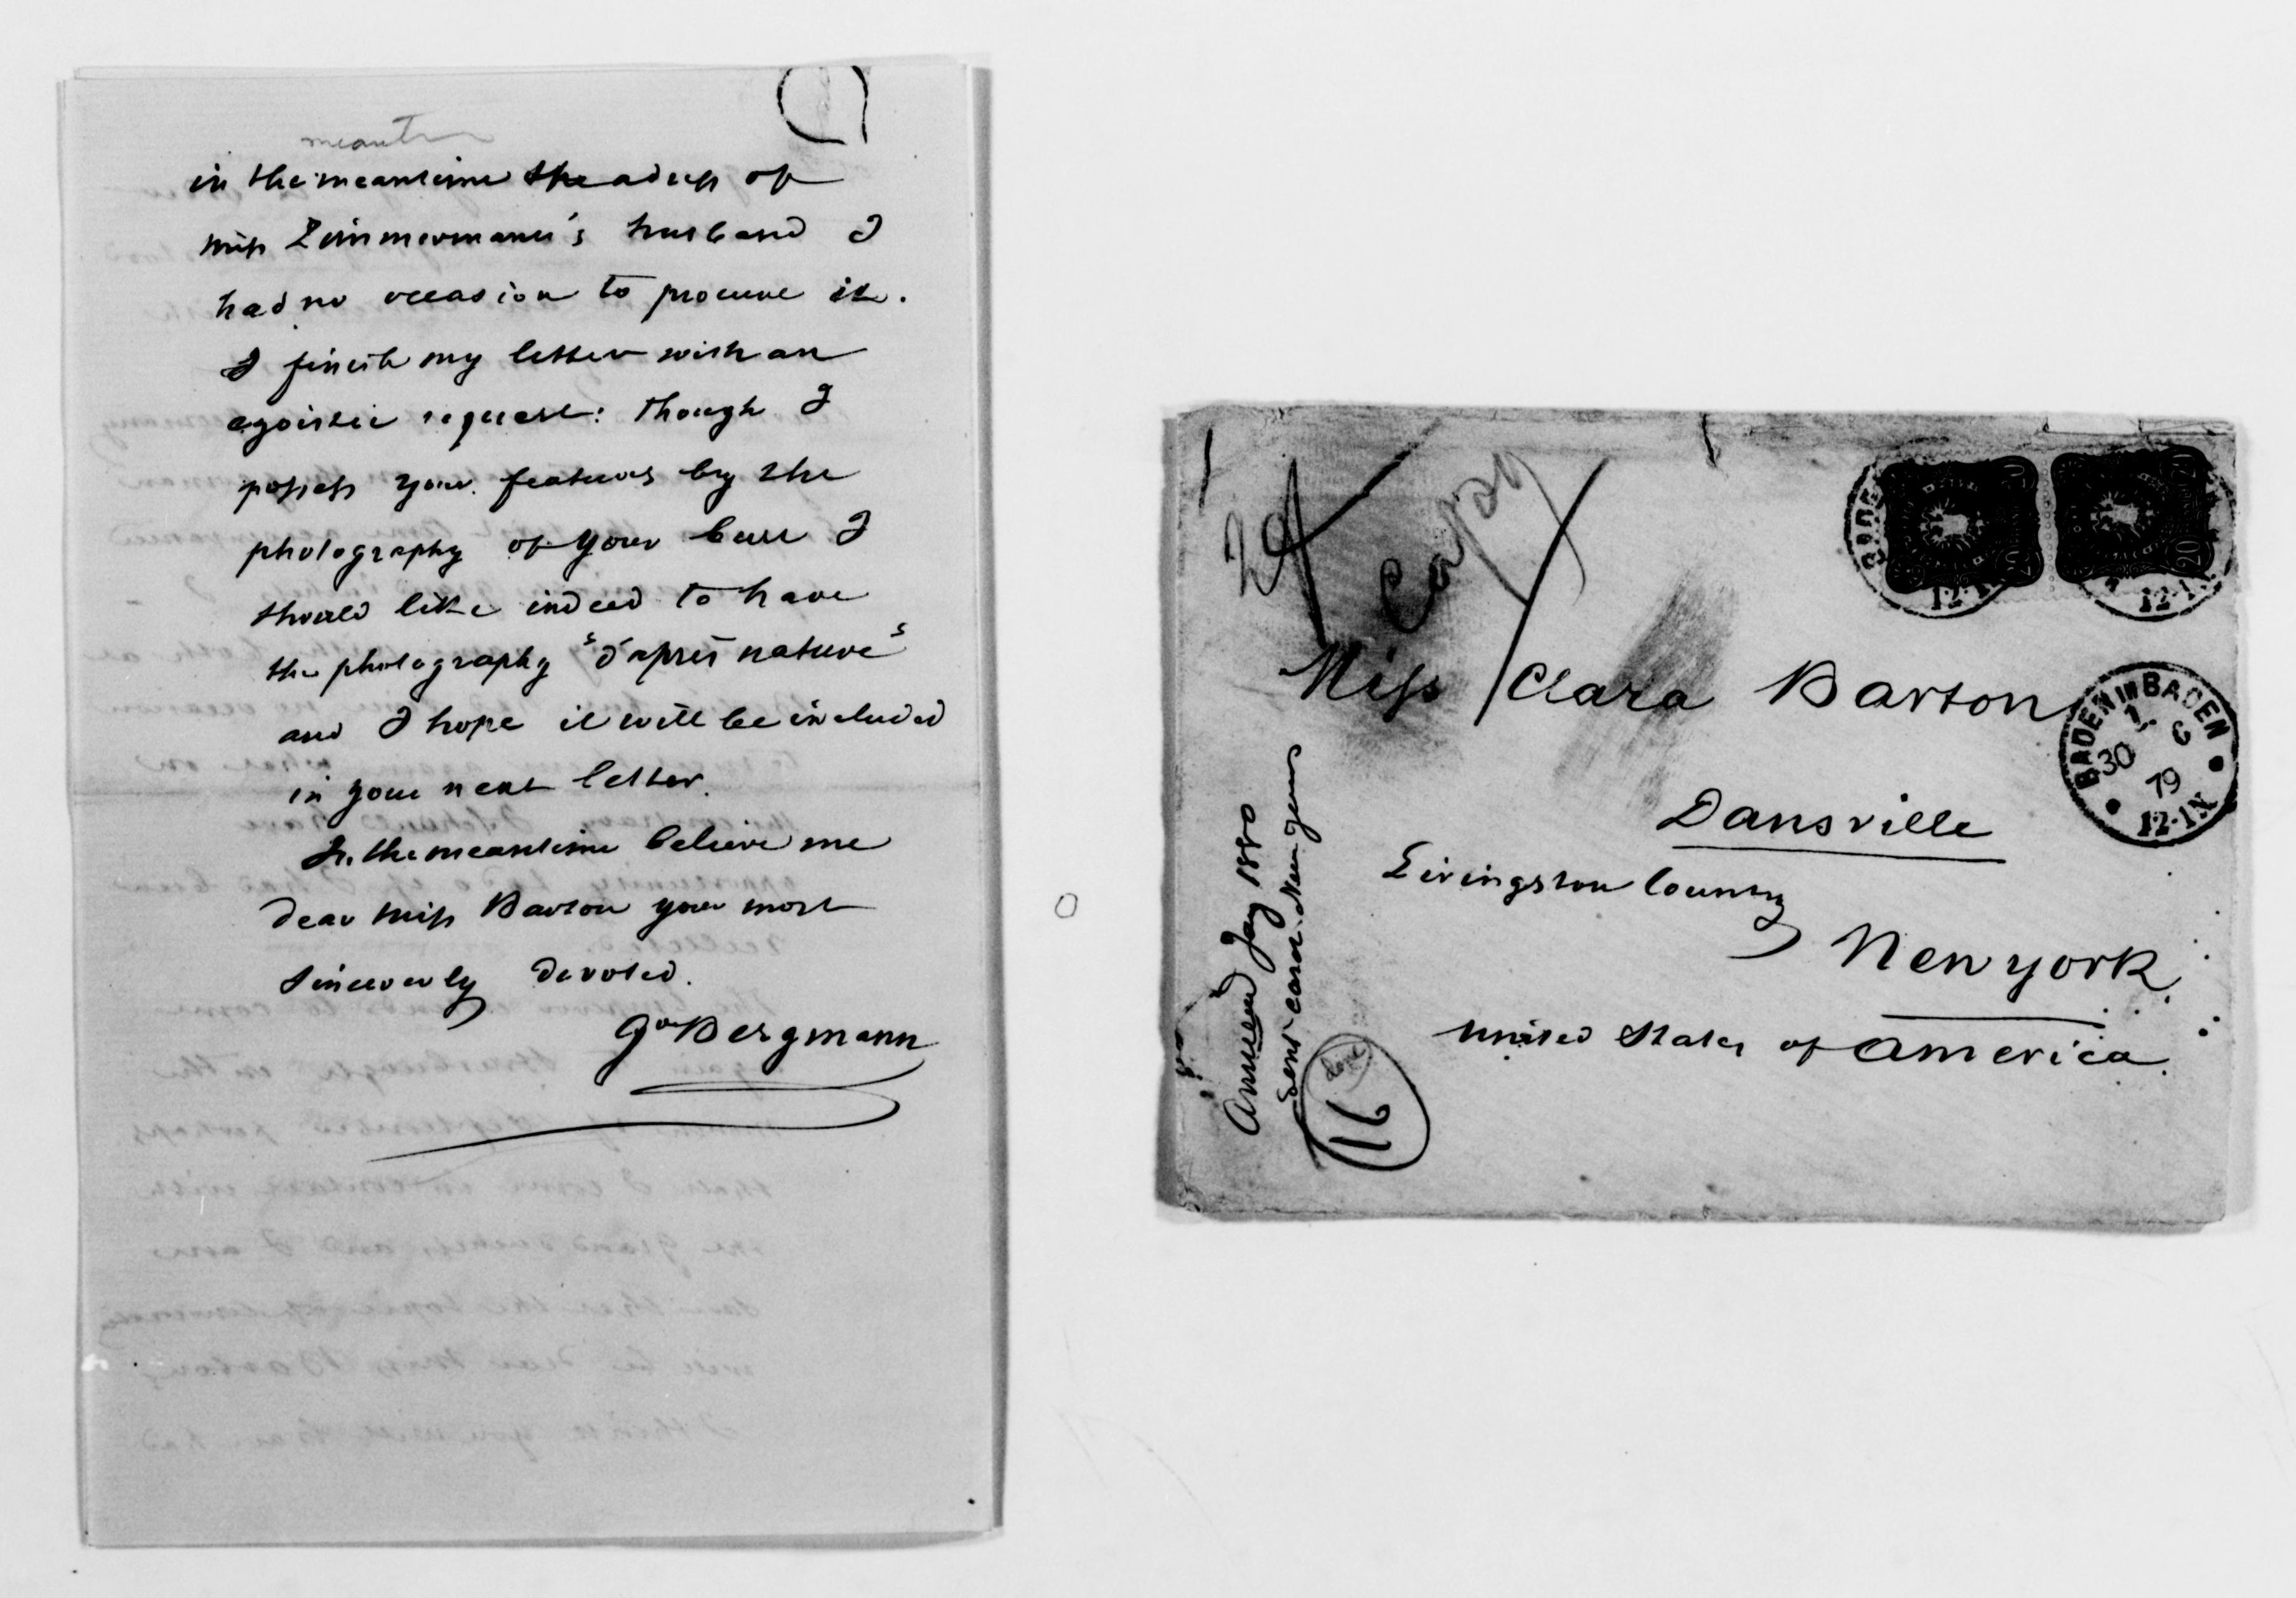 in the meantime the adress of
Miss Zimmermann's husband I
had no occasion to procure it.
I finish my letter with an
egoistic request: though I
possess your features by the
photography of your bust I
should like indeed to have
the photography "d'après nature"
and I hope it will be included
in your next letter.
In the meantime believe me
dear Miss Barton your most
sincerely devoted.
Gve Bergmann
Copy
Miss Clara Barton
Dansville
Livingston County
New York
United States of America
BADEN in BADEN
1 6
30
79
12-1 N
20
20
12-1
12-1
Answered Jay 1880
Sent card New years
16
done